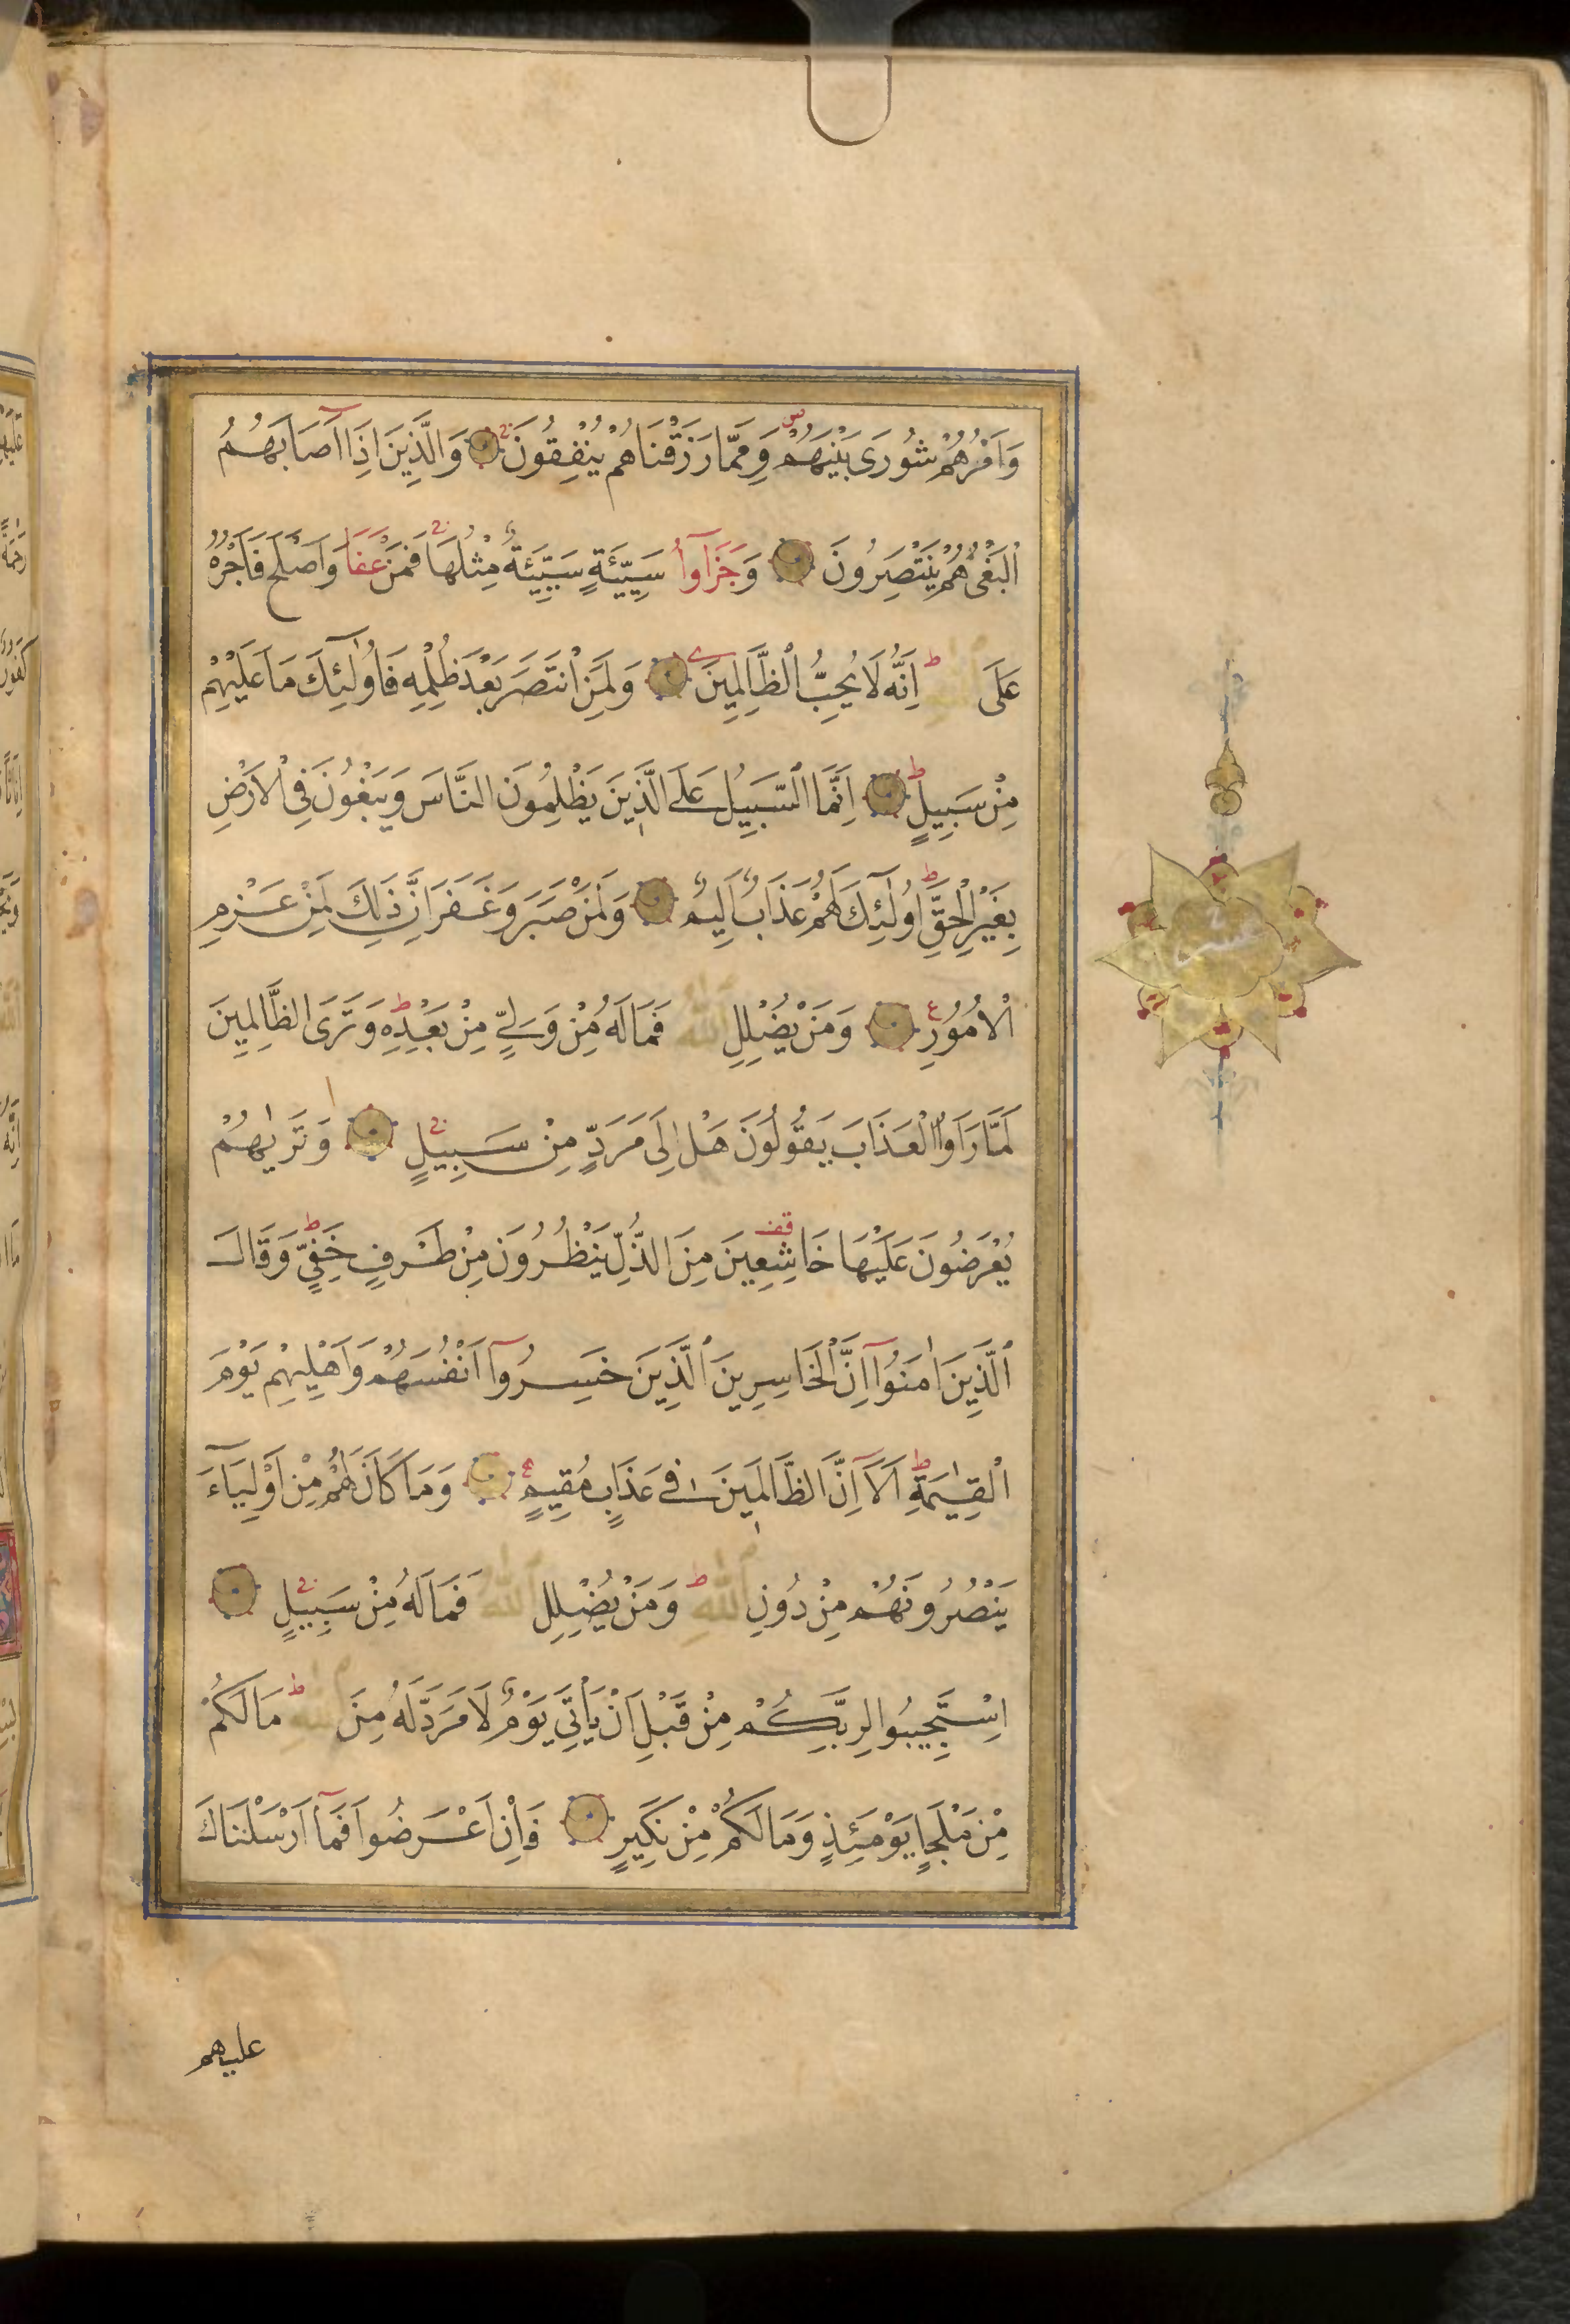 وَاَمْرُهُمْ شُورَى بَيْنَهُمْ وَمِمَّا رَزَقْنَاهُمْ يُنْفِقُونَ وَالَّذِينَ اِذَا اَصَابَهُمُ
الْبَغْىُ هُمْ يَنْتَصِرُونَ وَجَزَآوُا سَيِّئَةٍ سَيِّئَةٌ مِثْلُهَا فَمَنْ عَفَا وَاَصْلَحَ فَاَجْرُهُ
عَلَى اللهِ اِنَّهُ لَا يُحِبُّ الظَّالِمِينَ وَلَمَنِ انْتَصَرَ بَعْدَ ظُلْمِهِ فَاُولٰئِكَ مَا عَلَيْهِمْ
مِنْ سَبِيلٍ اِنَّمَا السَّبِيلُ عَلَى الَّذِينَ يَظْلِمُونَ النَّاسَ وَيَبْغُونَ فِى الْاَرْضِ
بِغَيْرِ الْحَقِّ اُولٰئِكَ لَهُمْ عَذَابٌ اَلِيمٌ وَلَمَنْ صَبَرَ وَغَفَرَ اِنَّ ذَلِكَ لَمِنْ عَزْمِ
الْاُمُورِ وَمَنْ يُضْلِلِ اللهُ فَمَا لَهُ مِنْ وَلِيٍّ مِنْ بَعْدِهِ وَتَرَى الظَّالِمِينَ
لَمَّا رَاَوُا الْعَذَابَ يَقُولُونَ هَلْ اِلَى مَرَدٍّ مِنْ سَبِيلٍ وَتَرٰيهُمْ
يُعْرَضُونَ عَلَيْهَا خَاشِعِينَ مِنَ الذُّلِّ يَنْظُرُونَ مِنْ طَرْفٍ خَفِيٍّ وَقَالَ
الَّذِينَ اٰمَنُوآ اِنَّ الْخَاسِرِينَ الَّذِينَ خَسِرُوآ اَنْفُسَهُمْ وَاَهْلِيهِمْ يَوْمَ
الْقِيٰمَةِ اَلَآ اِنَّ الظَّالِمِينَ فِى عَذَابٍ مُقِيمٍ وَمَا كَانَ لَهُمْ مِنْ اَوْلِيَآءَ
يَنْصُرُونَهُمْ مِنْ دُونِ اللهِ وَمَنْ يُضْلِلِ اللهُ فَمَا لَهُ مِنْ سَبِيلٍ
اِسْتَجِيبُوا لِرَبِّكُمْ مِنْ قَبْلِ اَنْ يَأْتِىَ يَوْمٌ لَا مَرَدَّ لَهُ مِنَ اللهِ مَا لَكُمْ
مِنْ مَلْجَاٍ يَوْمَئِذٍ وَمَا لَكُمْ مِنْ نَكِيرٍ فَاِنْ اَعْرَضُوا فَمَآ اَرْسَلْنَاكَ
عليهم